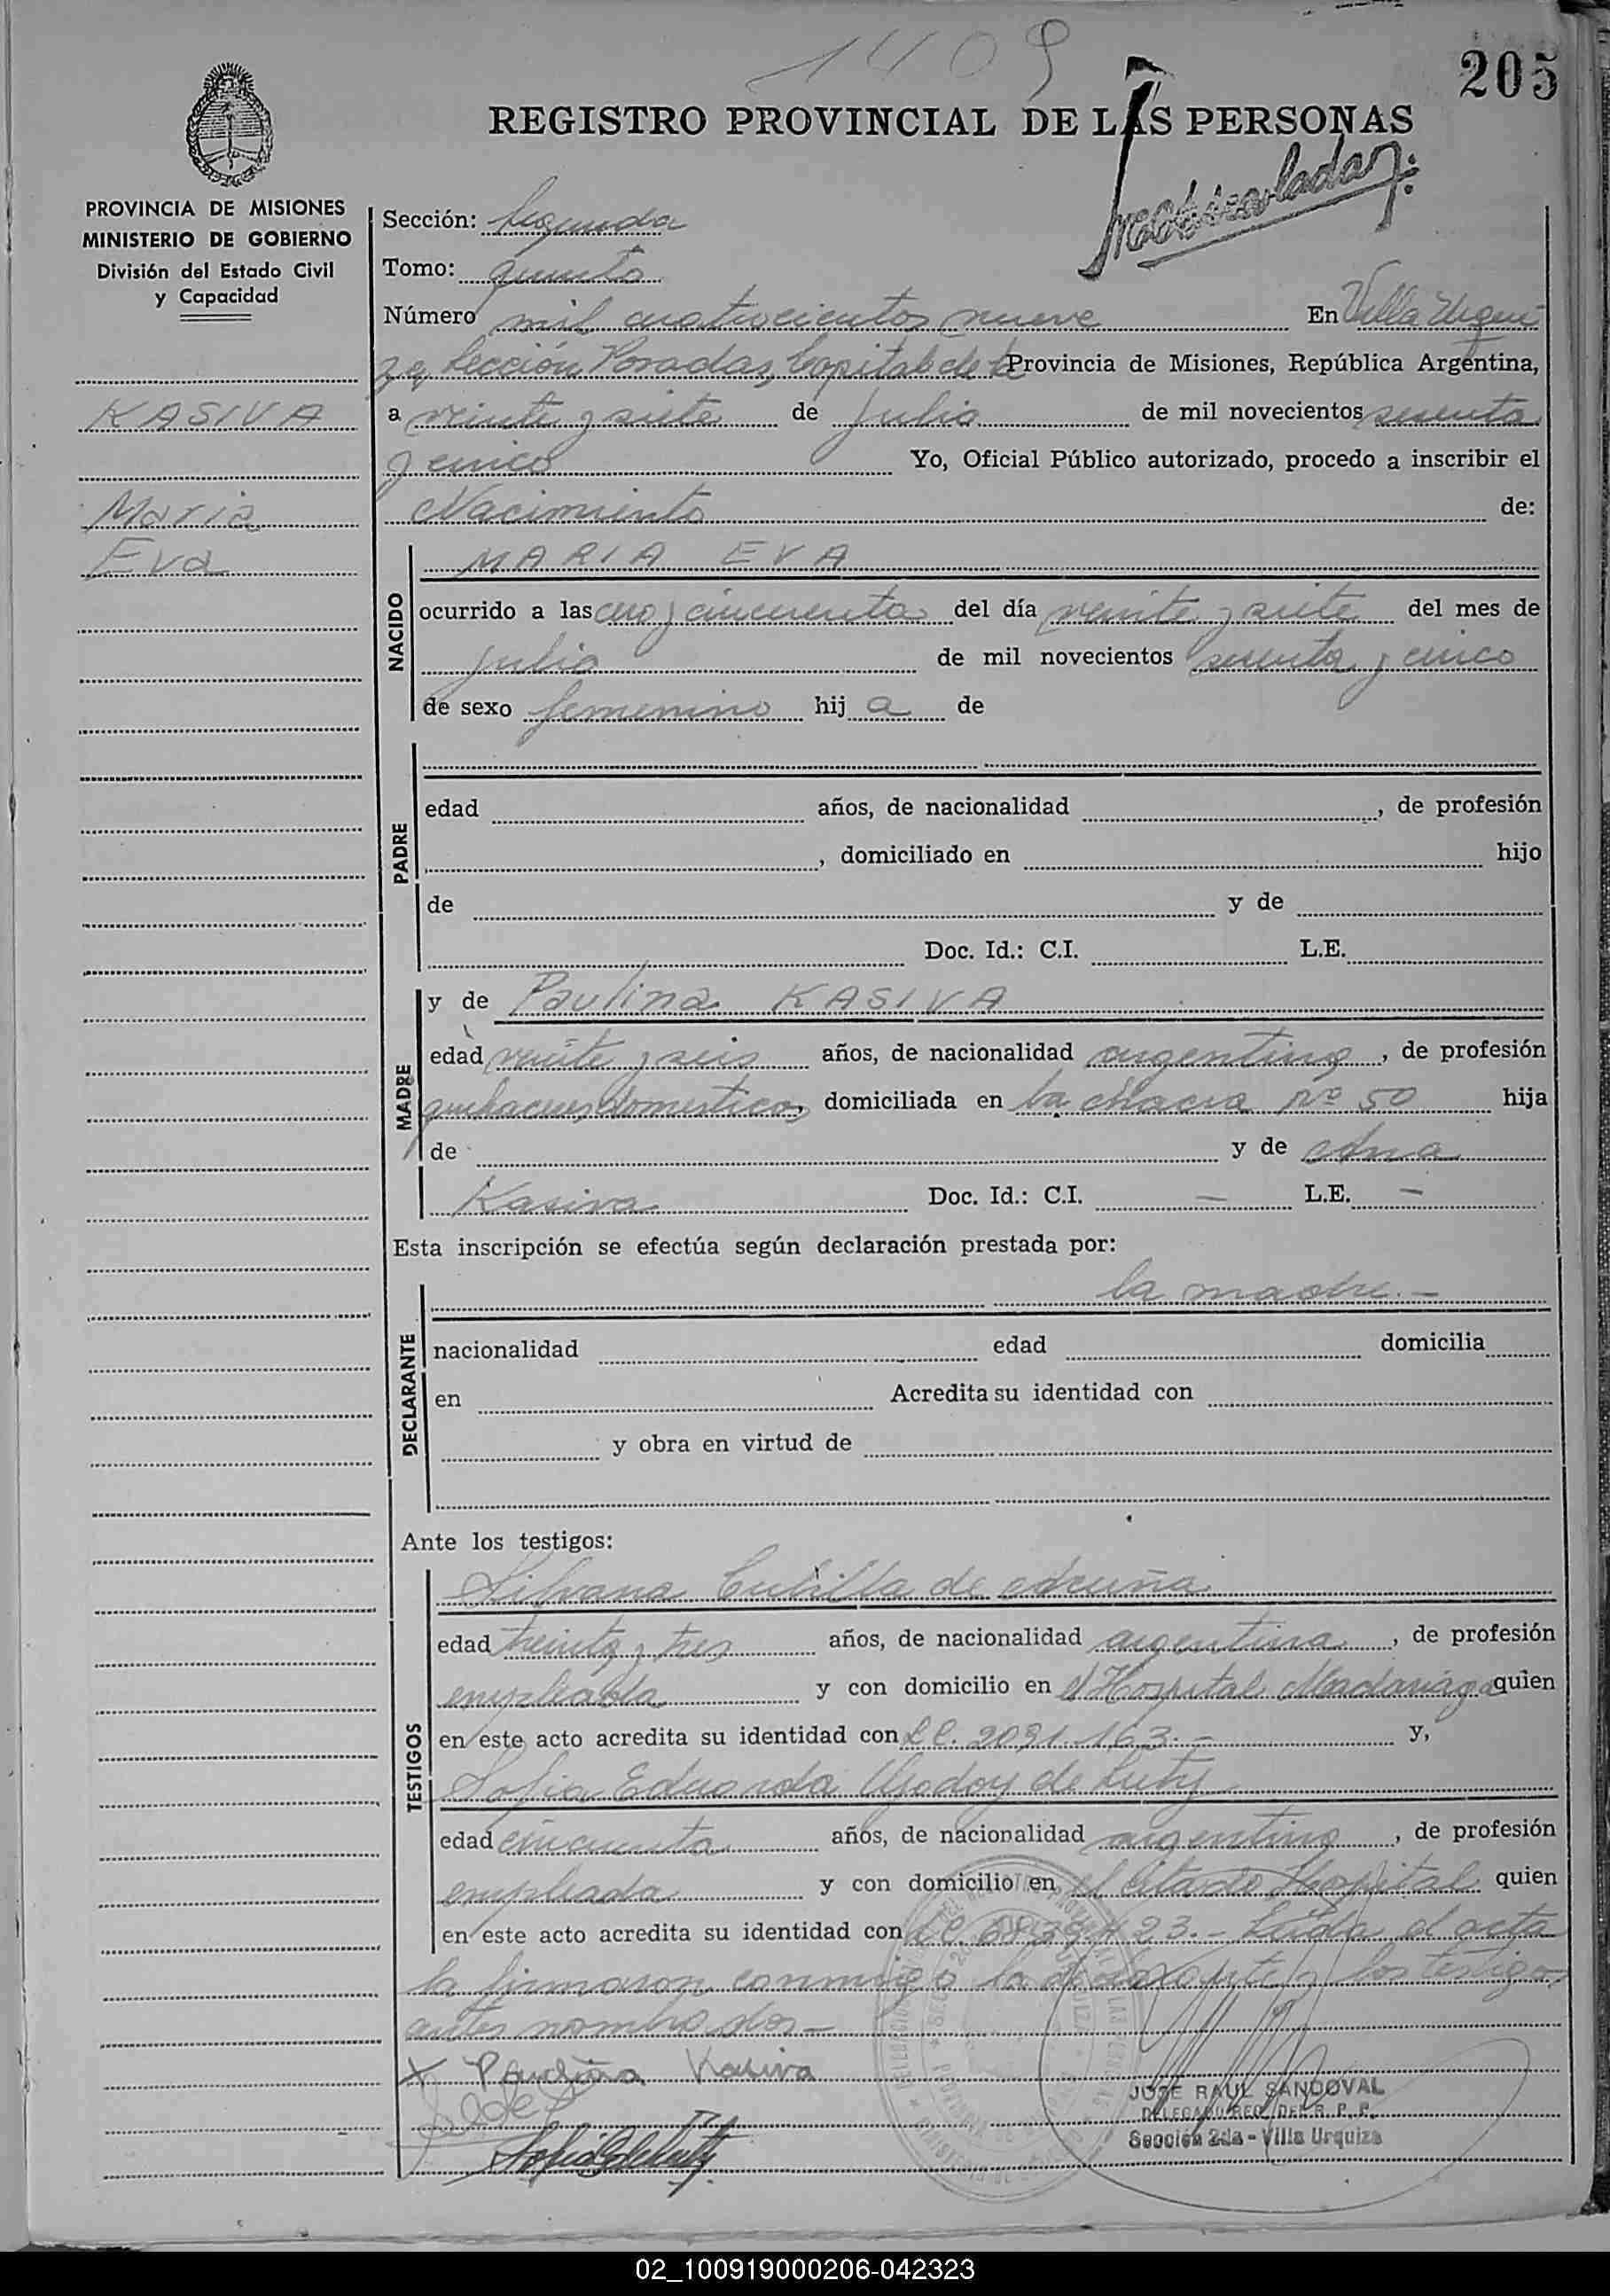 1409
205
REGISTRO PROVINCIAL DE LAS PERSONAS
PROVINCIA DE MISIONES
MINISTERIO DE GOBIERNO
División del Estado Civil
y Capacidad
KASIVA
Maria
Eva
Sección: Segunda
Tomo: quinto
Número mil cuatrocientos nueve En Villa Urqui-
za, Sección Posadas, Capital de la Provincia de Misiones, República Argentina,
a veinte y siete de Julio de mil novecientos sesenta
y cinco Yo, Oficial Público autorizado, procedo a inscribir el
Nacimiento de:
NACIDO
MARIA EVA
ocurrido a las cero y cincuenta del día veinte y siete del mes de
julio de mil novecientos sesenta y cinco
de sexo femenino hij a de
PADRE
edad años, de nacionalidad , de profesión
, domiciliado en hijo
de y de
Doc. Id.: C.I. L.E.
MADRE
y de Paulina KASIVA
edad veinte y seis años, de nacionalidad argentina, de profesión
quehaceres domesticos, domiciliada en la chacra Nº 50 hija
de y de Ana
Kasiva Doc. Id.: C.I. — L.E. —
Esta inscripción se efectúa según declaración prestada por:
DECLARANTE
la madre.-
nacionalidad edad domicilia
en Acredita su identidad con
y obra en virtud de
Ante los testigos:
TESTIGOS
Silvana Cubilla de Acuña
edad treinta y tres años, de nacionalidad argentina, de profesión
empleada y con domicilio en el Hospital Madariaga quien
en este acto acredita su identidad con L.C. 2091.163.- y,
Sofia Eduarda Godoy de
edad cincuenta años, de nacionalidad argentina, de profesión
empleada y con domicilio en el citado Hospital quien
en este acto acredita su identidad con L.C. Leida el acta
la firmaron conmigo la declarante y los testigos
antes nombrados-
x Paulina Kasiva
JOSE RAUL SANDOVAL
DELEGADO REG. DEL R. P. P.
Sección 2da - Villa Urquiza
02_100919000206-042323